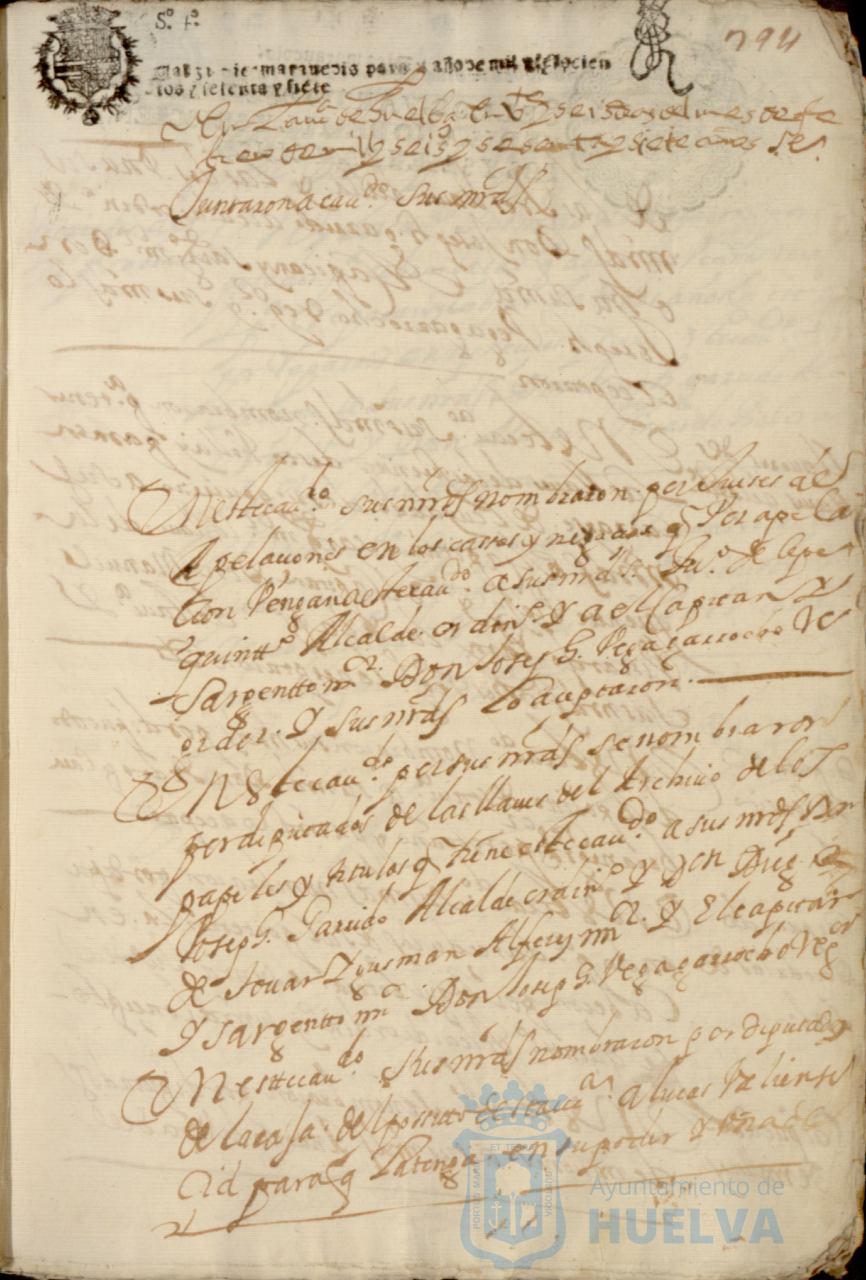 S.º 4.º
794
maravedis para el año de mil y seiscien
tos y setenta y siete
En la Villa de Huelba en Vte y seis dias del mes de fe
brero de mil y seisº y sesenta y siete años Se
Juntaron a cauᵈᵒ sus mrdˢ
En este cauᵈᵒ sus mrdˢ nombraron por Jueses de
Apelaciones en los casos y negosios q Por apela
cion Vengan a este cauᵈᵒ a sus mrdˢ Juº de Cepe
quinttº Alcalde ordinº Y a el Capitan Y
Sargentto mᵒʳ Don Joseph Vega garrocho Re
gidor. Y sus mrdˢ lo aceptaron.
En este cauᵈᵒ por sus mrdˢ se nombraron
por diputados de las llaves del Archivo de los
papeles y titulos q tiene este cauᵈᵒ a sus mrdˢ Dn
Joseph Garrido Alcalde ordinº Y Don Diegº
de Tovar Y gusman Alferes mᵒʳ. Y El capitan
Y sargentto mᵒʳ Don Joseph Vega garrocho Regᵒʳ
En este cauᵈᵒ sus mrdˢ nombraron por diputado
de la casa del a lucas Valiente
Cid para q la tenga en su poder
Ayuntamiento de
HUELVA